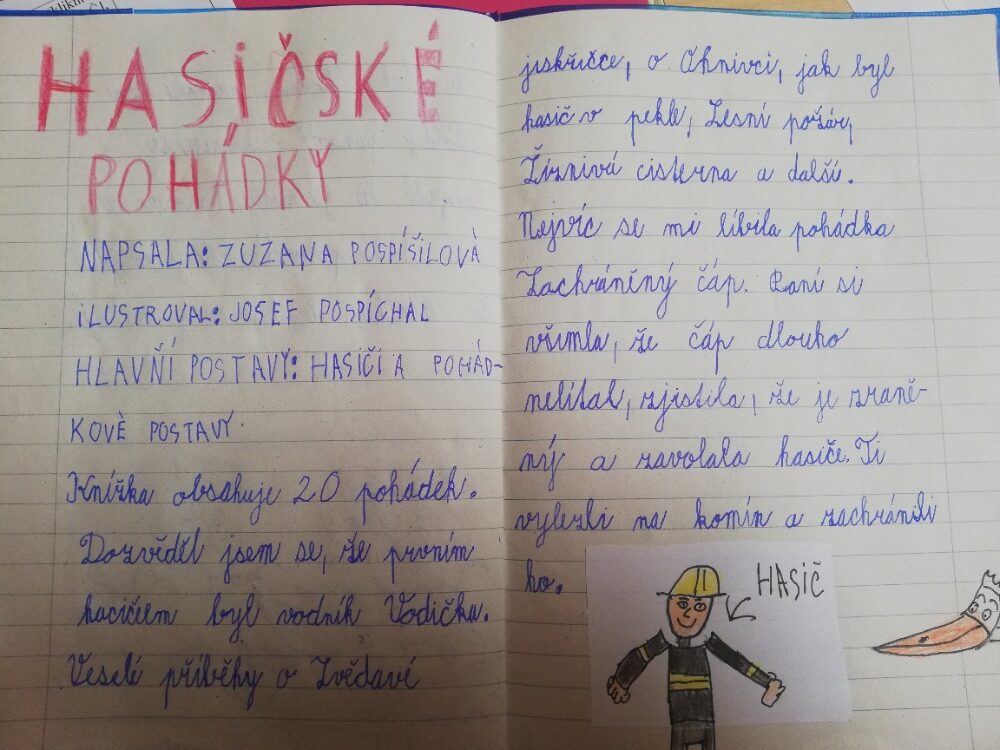 HASIČSKÉ
POHÁDKY
NAPSALA: ZUZANA POSPÍŠILOVÁ
ILUSTROVAL: JOSEF POSPÍCHAL
HLAVŇÍ POSTAVY: HASIČI A POHÁD-
KOVÉ POSTAVY.
Knížka obsahuje 20 pohádek.
Dozvěděl jsem se, že prvním
hacičiem byl vodník Vodička.
Veselé příběhy o Zvědavé
jiskřičce, o Ohnivci, jak byl
hasič v pekle, Lesní požár,
Žíznivá cisterna a další.
Nejvíc se mi líbila pohádka
Zachráněný čáp. Paní si
všimla, že čáp dlouho
nelítal, zjistila, že je zraně-
ný a zavolala hasiče. Ti
vylezli na komín a zachránili
ho.
HASIČ